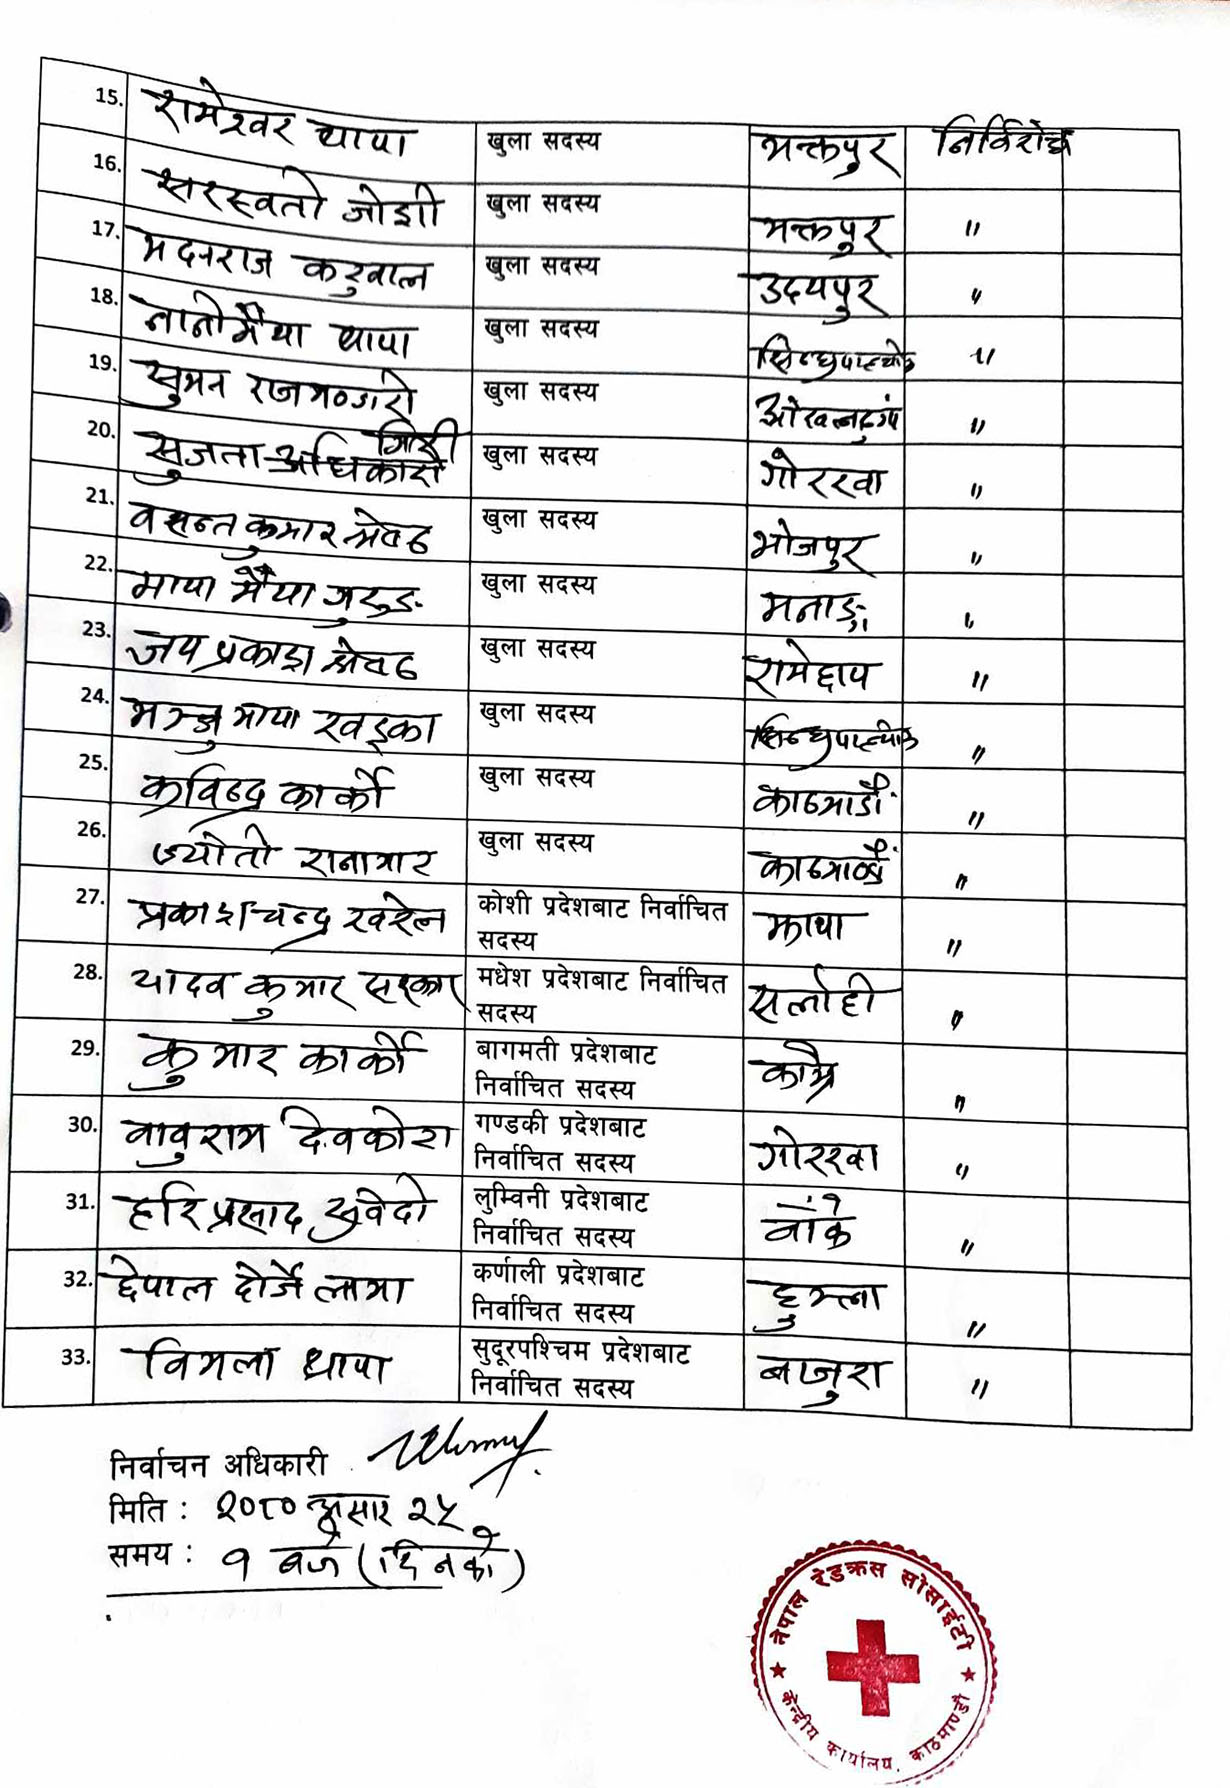 15. रामेश्वर थापा खुला सदस्य भक्तपुर निर्विरोध
16. सरस्वती जोशी खुला सदस्य भक्तपुर "
17. मदनराज खुला सदस्य उदयपुर "
18. नानीमैया थापा खुला सदस्य सिन्धुपाल्चोक "
19. सुमन राजभण्डारी खुला सदस्य "
20. सुजाता खुला सदस्य गोरखा "
21. वसन्त कुमार श्रेष्ठ खुला सदस्य भोजपुर "
22. माया मैया गुरुङ खुला सदस्य मनाङ "
23. जय प्रकाश श्रेष्ठ खुला सदस्य रामेछाप "
24. मञ्जु माया खड्का खुला सदस्य सिन्धुपाल्चोक "
25. कविन्द्र कार्की खुला सदस्य काठमाडौं "
26. ज्योती रानामगर खुला सदस्य काठमाण्डौं "
27. प्रकाश चन्द्र खरेल कोशी प्रदेशबाट निर्वाचित झापा "
सदस्य
28. यादव कुमार मधेश प्रदेशबाट निर्वाचित सर्लाही "
सदस्य
29. कुमार कार्की बागमती प्रदेशबाट काभ्रे "
निर्वाचित सदस्य
30. बाबुराम देवकोटा गण्डकी प्रदेशबाट गोरखा "
निर्वाचित सदस्य
31. हरि प्रसाद सुवेदी लुम्विनी प्रदेशबाट बाँके "
निर्वाचित सदस्य
32. छेपाल दोर्जे लामा कर्णाली प्रदेशबाट हुम्ला "
निर्वाचित सदस्य
33. विमला थापा सुदूरपश्चिम प्रदेशबाट बाजुरा "
निर्वाचित सदस्य
निर्वाचन अधिकारी
मिति : २०८० असार २५
समय : १ बजे (दिनको)
नेपाल रेडक्रस सोसाईटी
केन्द्रीय कार्यालय, काठमाण्डौ